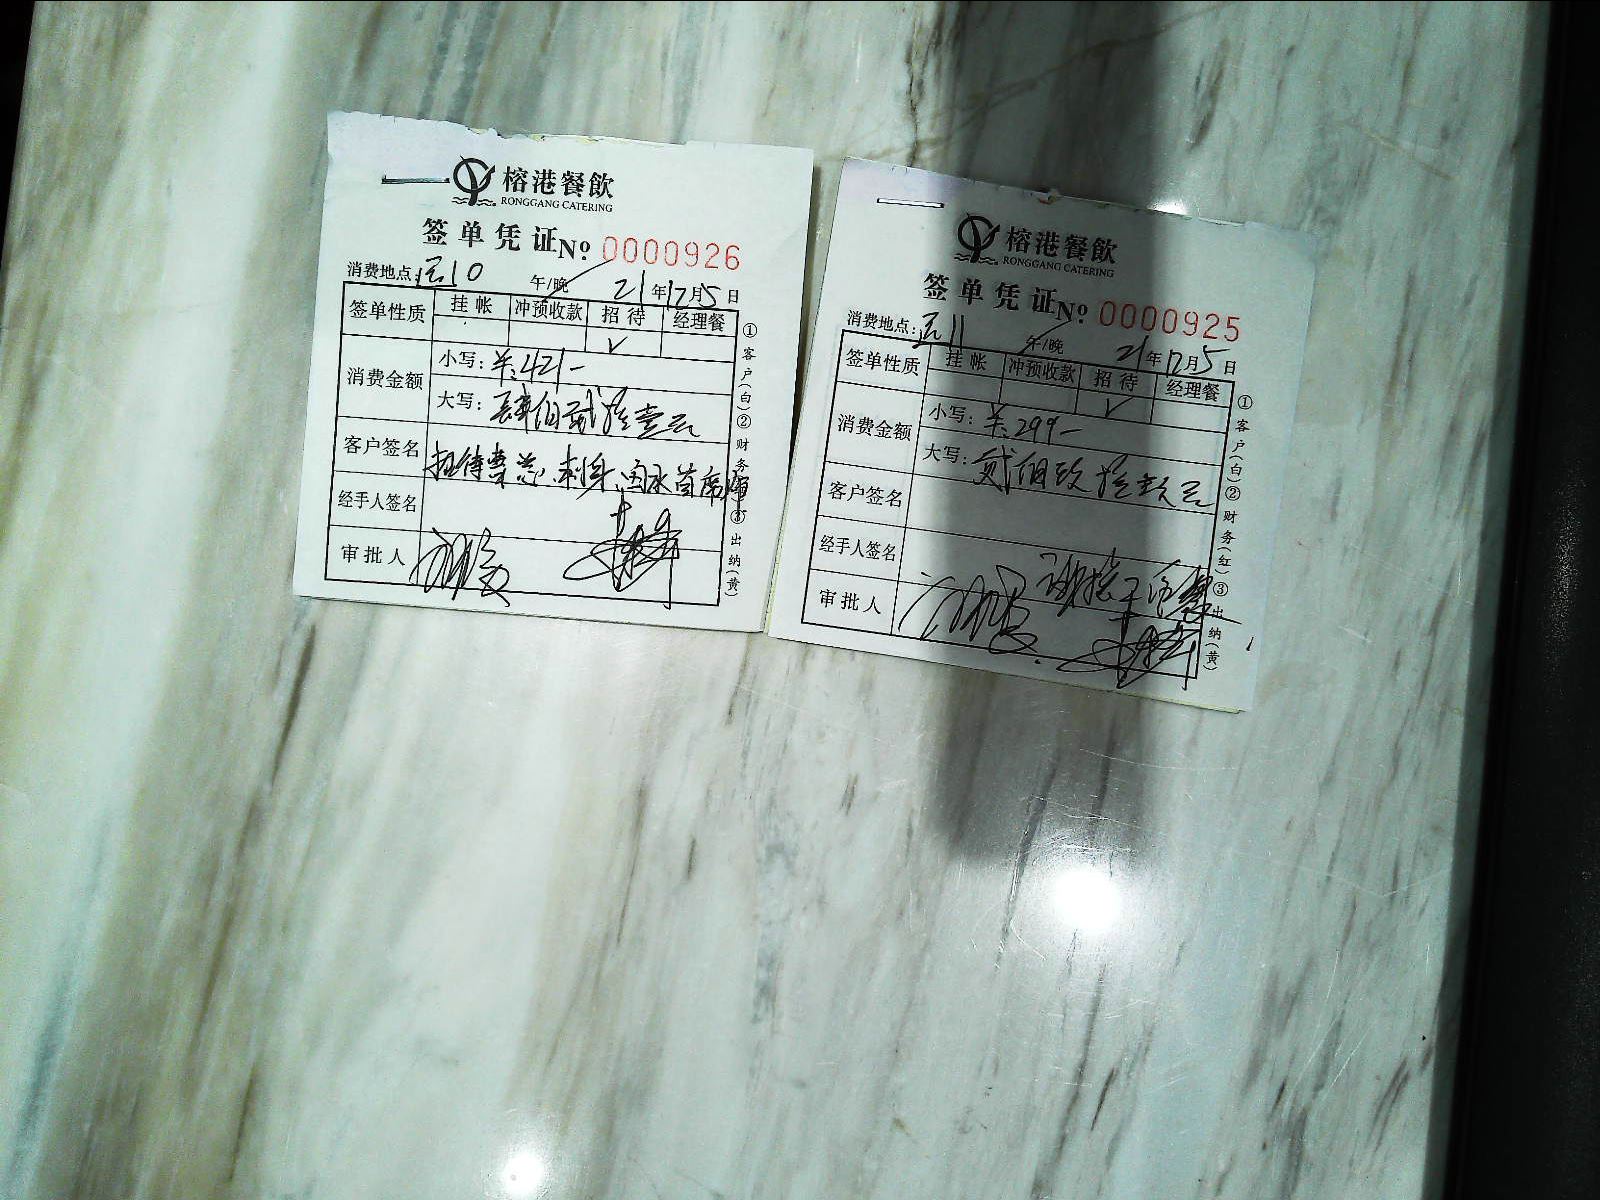 榕港餐飲
RONGGANG CATERING
签单凭证 No: 0000926
消费地点: 午/晚 21年12月5日
签单性质 挂帐 冲预收款 招待 经理餐
✓
消费金额
小写: ¥:421-
大写: 肆佰贰拾壹元
客户签名
招待 总.刺身、 首席
经手人签名
审批人
①客户(白)②财务 ③出纳(黄)
榕港餐飲
RONGGANG CATERING
签单凭证 No: 0000925
消费地点: 午/晚 21年12月5日
签单性质 挂帐 冲预收款 招待 经理餐
✓
消费金额
小写: ¥:299-
大写: 贰佰玖拾玖元
客户签名
经手人签名
审批人
①客户(白)②财务(红)③出纳(黄)